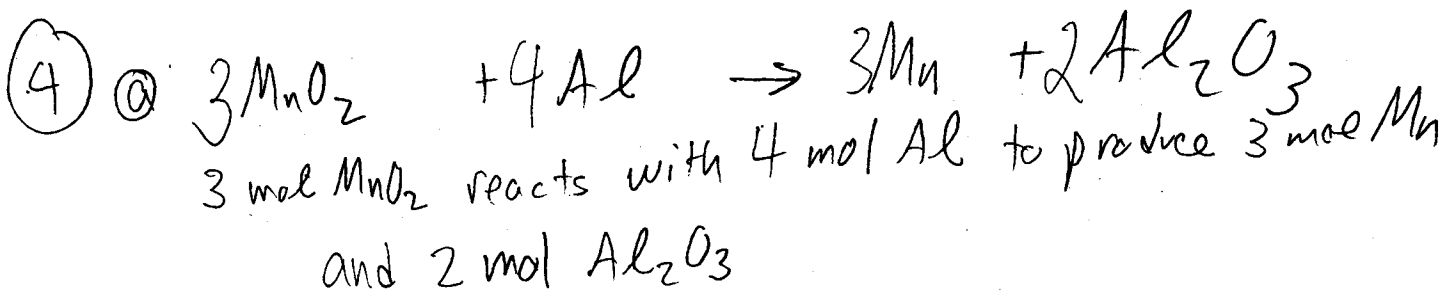 ④ ⓐ 3MnO₂ + 4Al → 3Mn + 2Al₂O₃
3 mol MnO₂ reacts with 4 mol Al to produce 3 mol Mn
and 2 mol Al₂O₃